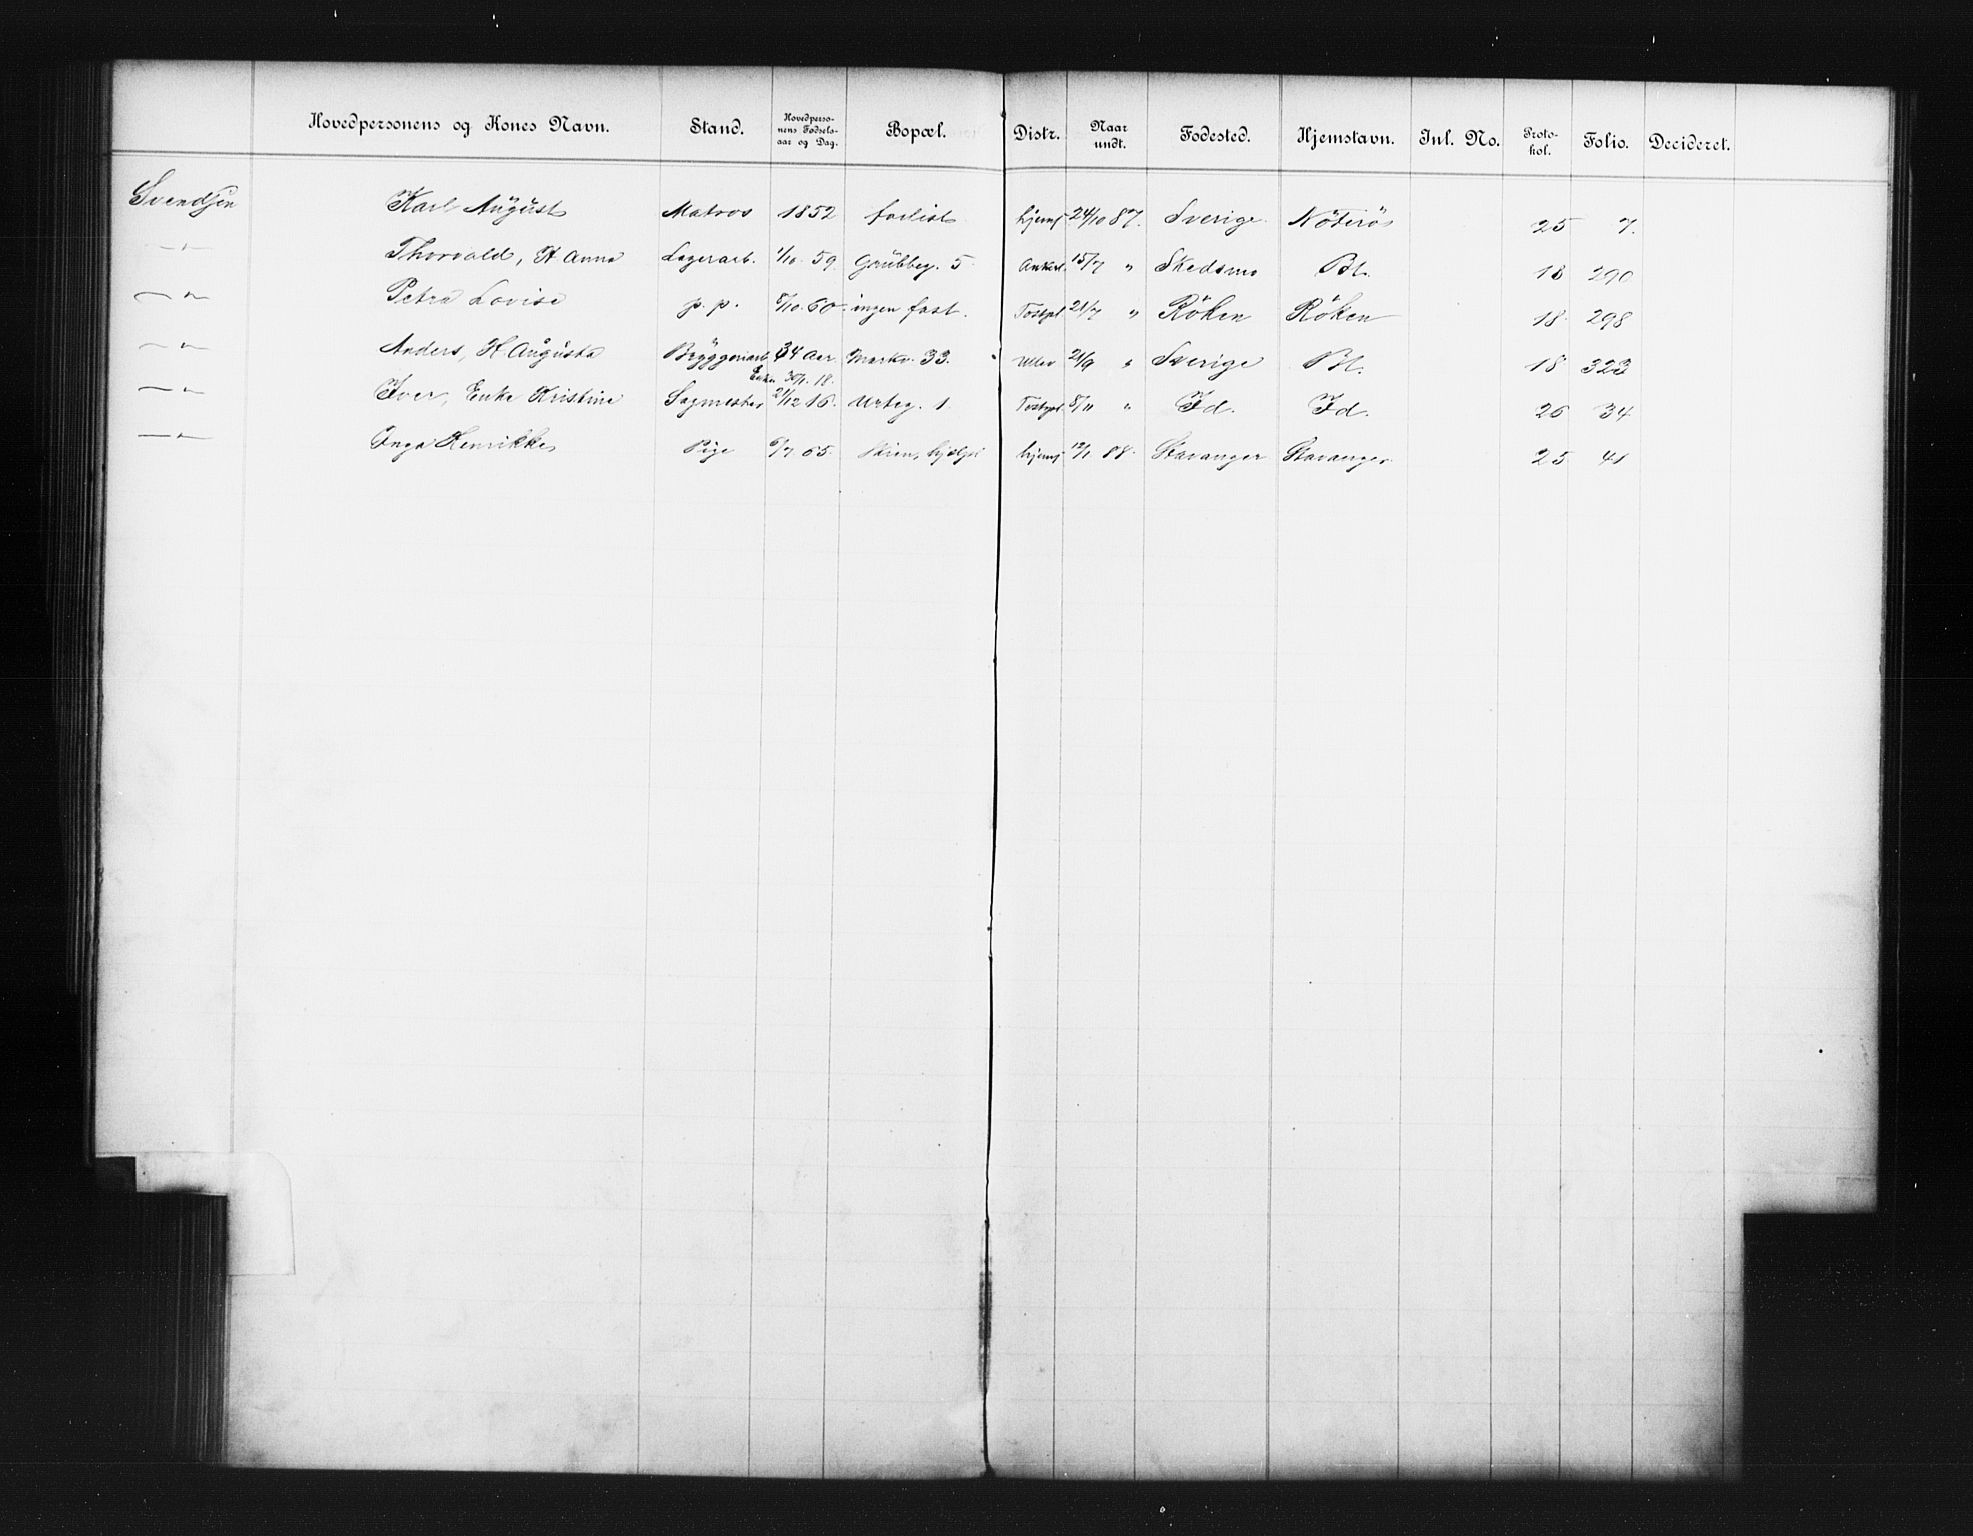 Hovedpersonens og Kones Navn. Stand. Hovedpersonens Fødselsaar og Dag. Bopæl. Distr. Naar undt. Fødested. Hjemstavn. Inl. No. Protokol. Folio. Decideret.
Svendsen Karl August Matros 1852 forlist hjemf 24/10 87. Sverige Nöterö 25 7.
—"— Thorvald, H Anna Lagerarb. 1/10 59 Grübbeg. 5 Ankerl. 15/7 " Skedsmo Bl. 18 290
—"— Petra Lovise p. p. 8/10 60. ingen fast. Tostpl 21/7 " Röken Röken 18 298
—"— Anders, H Augusta Bryggeriarb 34 Aar Markv. 33. Ullev 21/9 " Sverige Bl. 18 323
Enke 30/1 18.
—"— Iver, Enke Kristine Sagmester 21/12 16. Urteg. 1 Tostpl. 8/11 " Id. Id. 26 34
—"— Inga Henrikke Pige 6/7 65. hjemf 12/1 88. Stavanger Stavanger 25 41